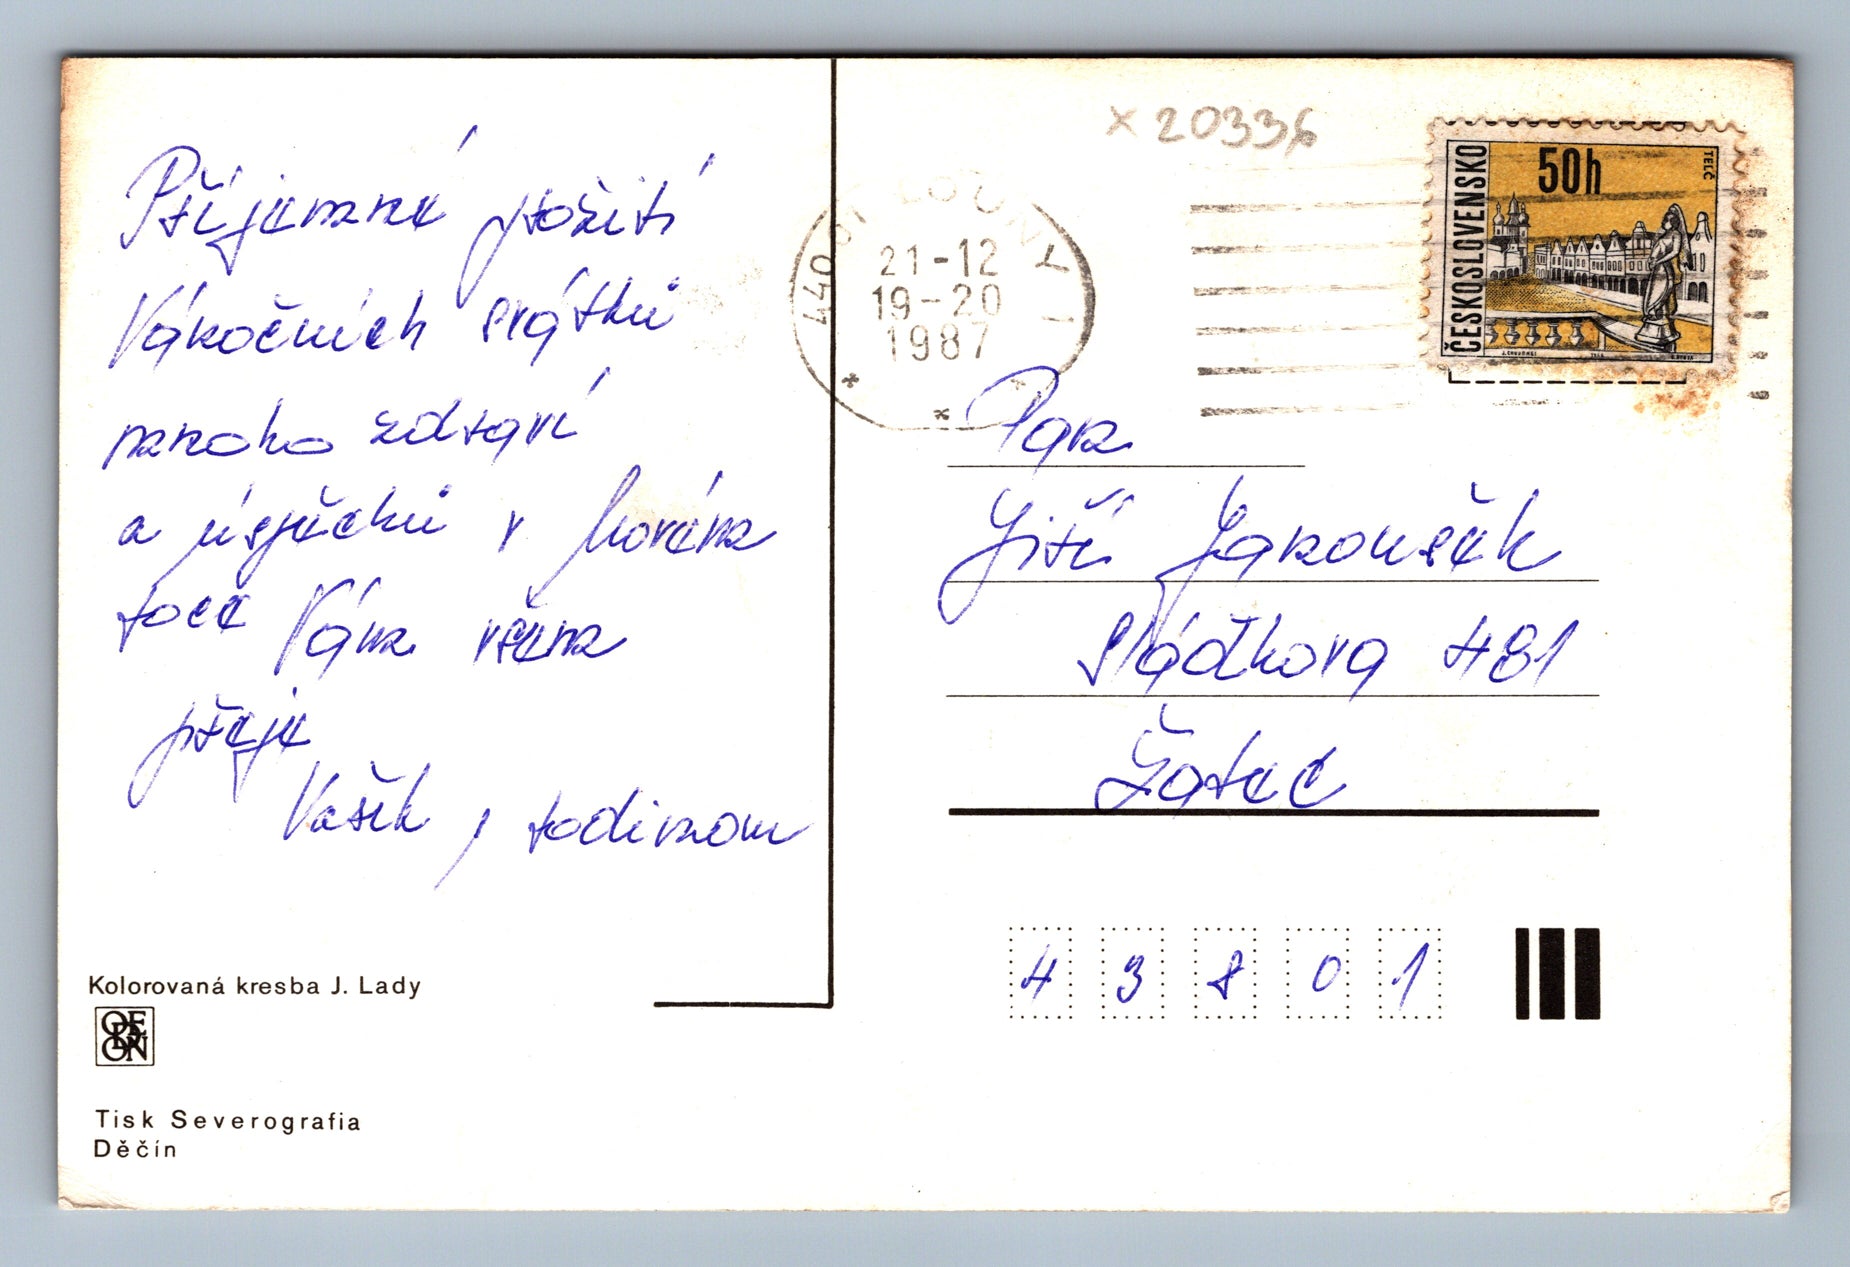 Příjemné prožití
Vánočních svátků
mnoho zdraví
a úspěchů v novém
roce Vám všem
přeje
Vašek s rodinou
Kolorovaná kresba J. Lady
ODEON
Tisk Severografia
Děčín
x 20336
440 01 LOUNY 1
21-12
19-20
1987
ČESKOSLOVENSKO
50h
TELČ
Pan
Jiří Janoušek
Sládkova 481
Žatec
4 3 8 0 1